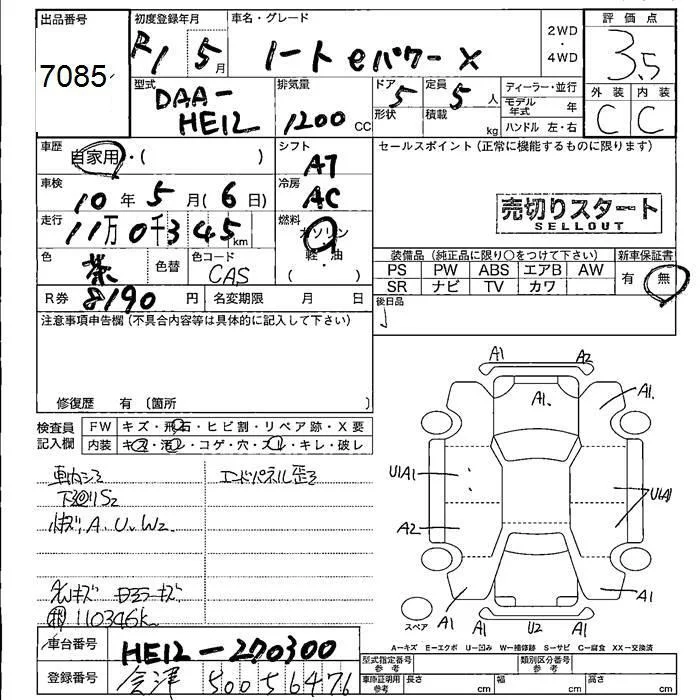 出品番号
7085
初度登録年月
R1 5月
車名・グレード
ノート eパワー X
2WD
・
4WD
評価点
3.5
外装 内装
C C
型式
DAA-
HE12
排気量
1200 CC
ドア
5
形状
定員
5人
積載
kg
ディーラー・並行
モデル年式 年
ハンドル 左・右
車歴
自家用・( )
シフト
AT
セールスポイント (正常に機能するものに限ります)
車検
10年 5月(6日)
冷房
AC
売切りスタート
SELLOUT
走行
11万0千345km
燃料
ガソリン
軽・油
( )
色
茶
色替
色コード
CAS
装備品 (純正品に限り○をつけて下さい)
新車保証書
PS PW ABS エアB AW
SR ナビ TV カワ
有 無
R券 8190円
名変期限 月 日
後日品
注意事項申告欄 (不具合内容等は具体的に記入して下さい)
修復歴 有 〔箇所 〕
検査員
記入欄
FW キズ・飛石・ヒビ割・リペア跡・X要
内装 キズ・汚レ・コゲ・穴・スレ・キレ・破レ
車内シミ
下廻りS2
エンドパネル歪ミ
小キズ A.U.W2
110346k
A1 A2
A1. A1.
U1A1 U1A1
A2
A1 A1
スペア
A1 U2 A1
A-キズ E-エクボ U-凹み W-補修跡 S-サビ C-腐食 XX-交換済
車台番号
HE12-270300
登録番号
会津 500 さ 6476
型式指定番号
参考
類別区分番号
参考
車庫証明用
参考
長さ cm 幅 cm 高さ cm